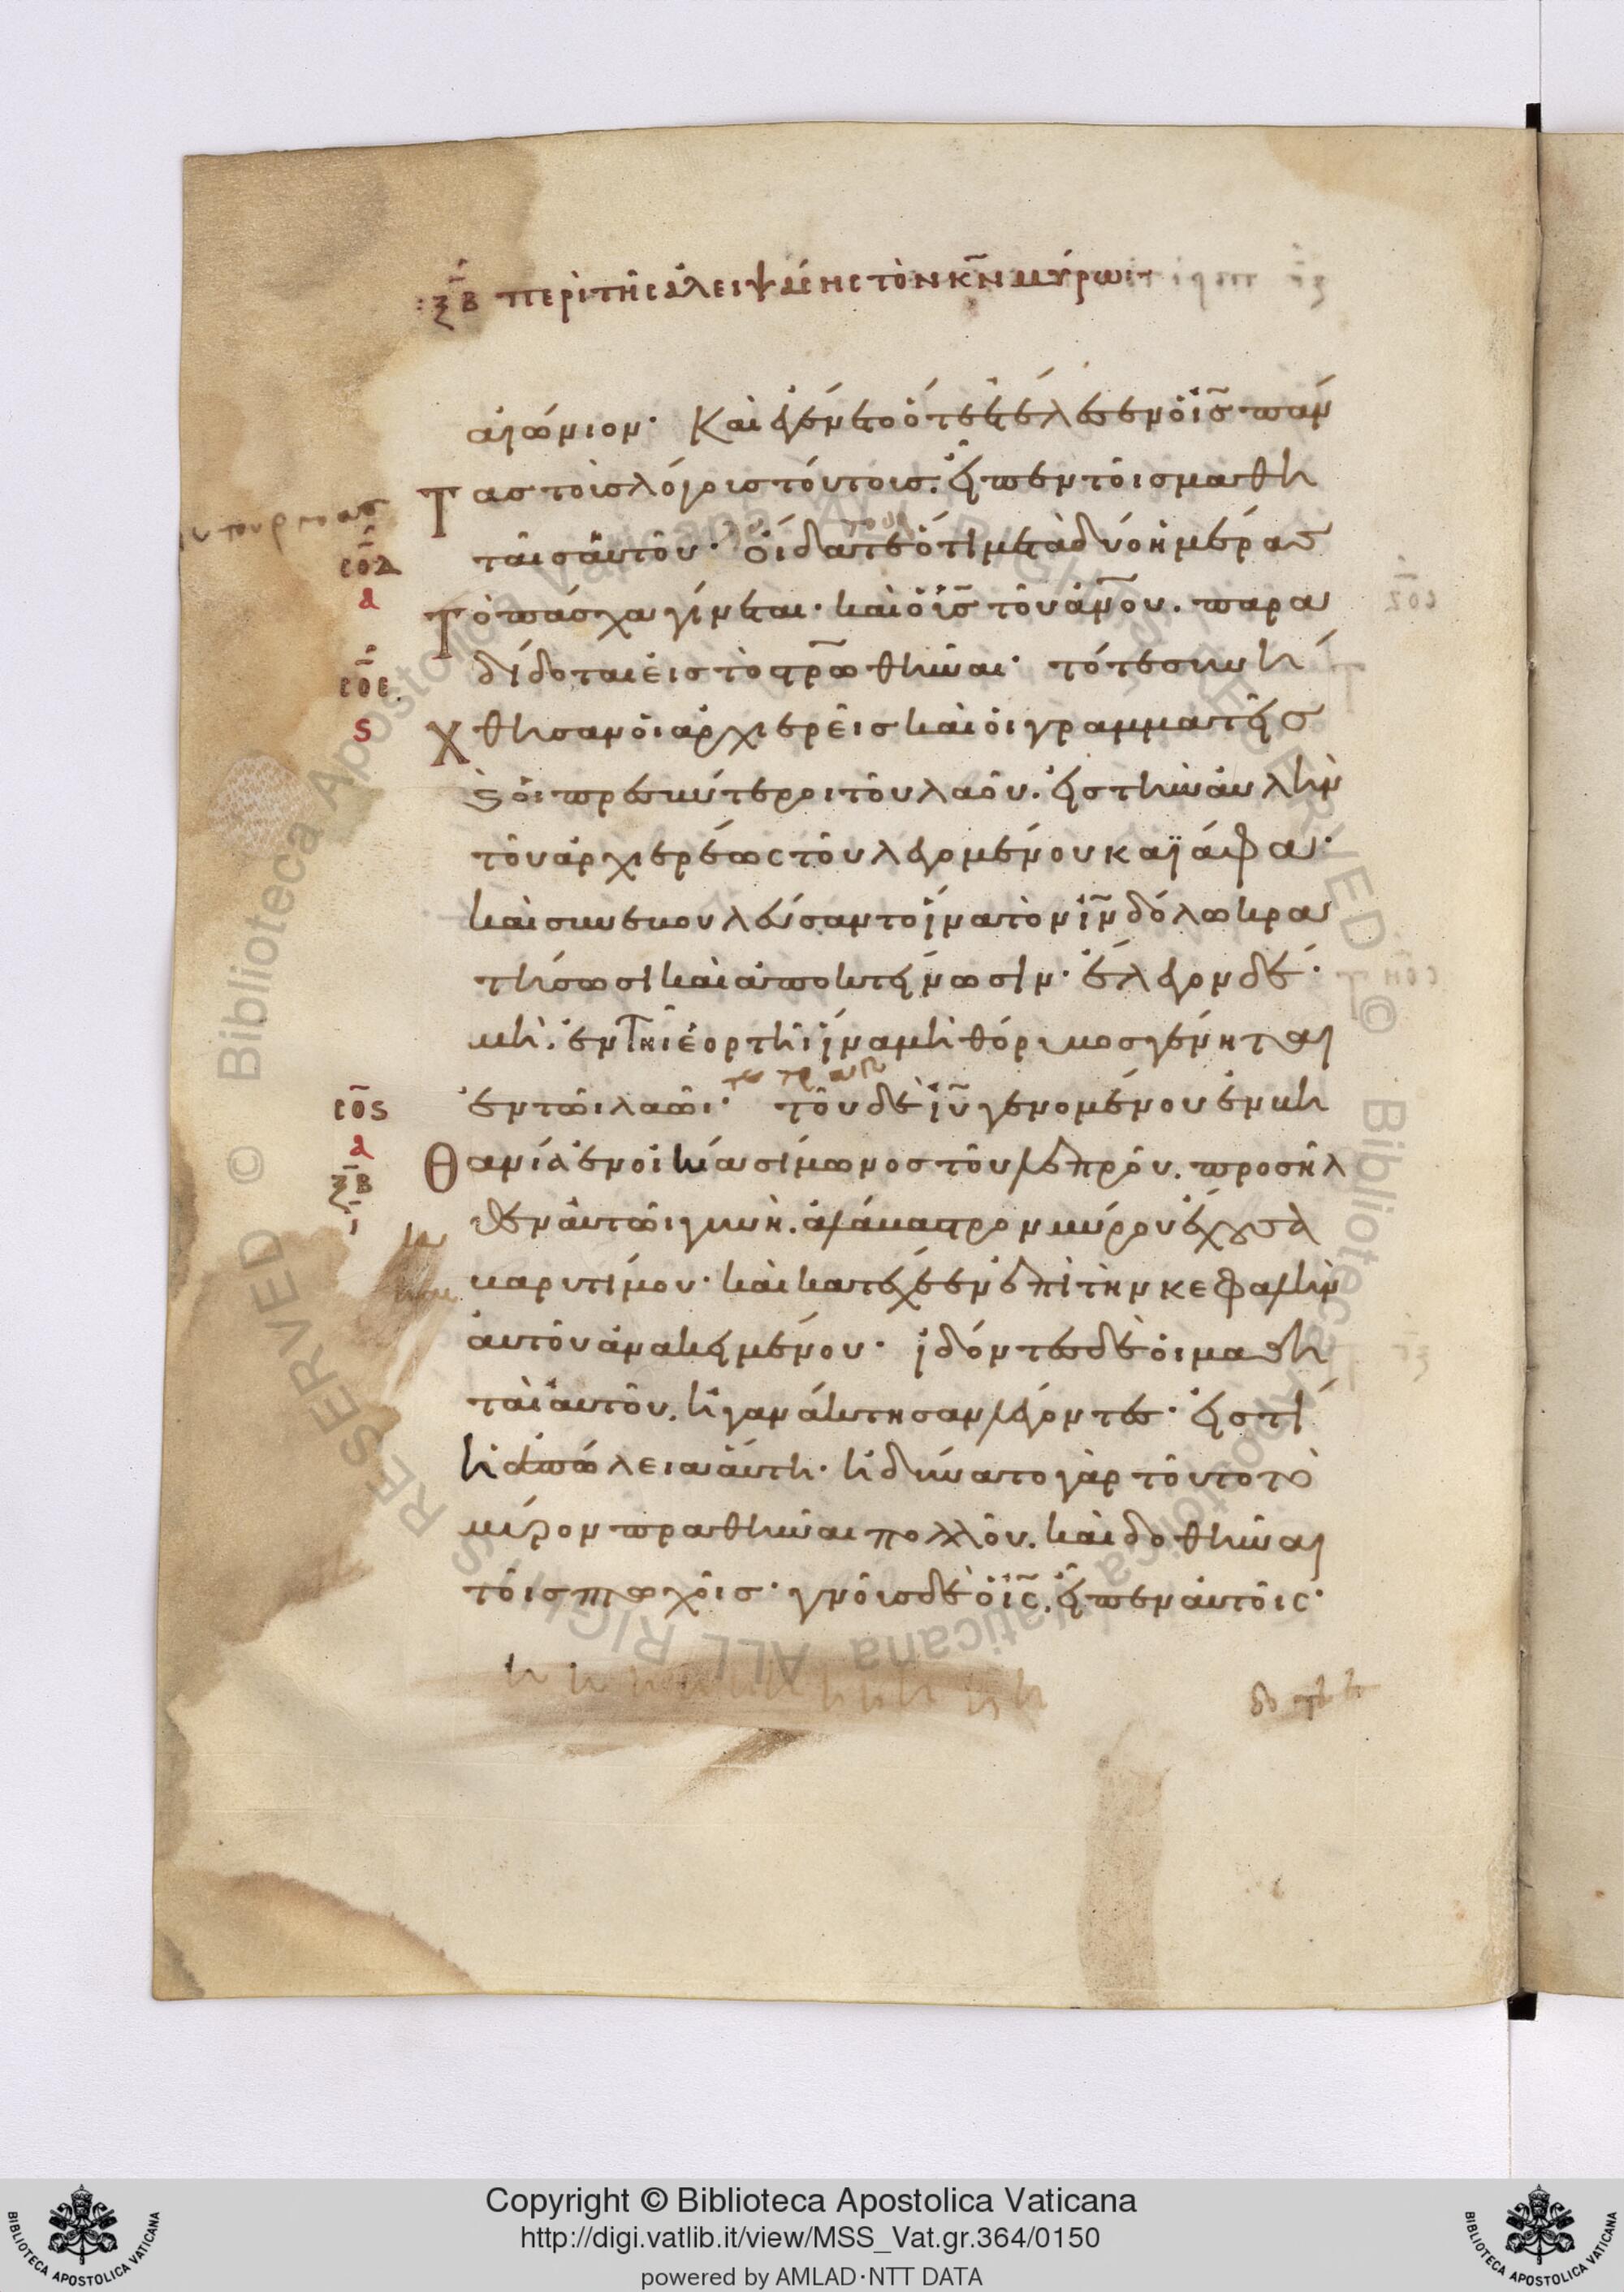 ξβ περὶ τῆς ἀλειψάσης τὸν κν μύρωι
αἰώνιον· Καὶ ἐγένετο ὅτε ἐτέλεσεν ὁ ις πάν
τας τοὺς λόγους τούτους. εἶπεν τοῖς μαθη
ταῖς αὐτοῦ· οἴδατε ὅτι μετὰ δύο ἡμέρας
σοδ
α
Τὸ πάσχα γίνεται· καὶ ὁ υις τοῦ ανου. παρα
δίδοται εἰς τὸ στρωθῆναι· τότε συνή
σοε
ς
χθησαν οἱ ἀρχιερεῖς καὶ οἱ γραμματεῖς
καὶ οἱ πρεσβύτεροι τοῦ λαοῦ. εἰς τὴν αὐλὴν
τοῦ ἀρχιερέως τοῦ λεγομένου καϊάφα·
καὶ συνεβουλεύσαντο ἵνα τὸν ιν δόλω κρα
τήσωσι καὶ ἀποκτείνωσιν· ἔλεγον δέ·
μὴ. ἐν τῆι ἑορτῆι ἵνα μὴ θόρυβος γένηται
ἐν τῶι λαῶι· τοῦ δὲ ιυ γενομένου ἐν βη
σος
α
ξβ
ι
Θανία ἐν οἰκία σίμωνος τοῦ λεπροῦ. προσῆλ
θεν αὐτῶι γυνὴ. ἀλάβαστρον μύρου ἔχουσα
βαρυτίμου· καὶ κατέχεεν ἐπὶ τὴν κεφαλὴν
αὐτοῦ ἀνακειμένου· ἰδόντες δὲ οἱ μαθη
ταὶ αὐτοῦ. ἠγανάκτησαν λέγοντες· εἰς τί
ἡ ἀπώλεια αὕτη· ἠδύνατο γὰρ τοῦτο τὸ
μύρον πραθῆναι πολλοῦ. καὶ δοθῆναι
τοῖς πτωχοῖς· γνοὺς δὲ ὁ ις. εἶπεν αὐτοῖς·
© Biblioteca Apostolica Vaticana ALL RIGHTS RESERVED
© Biblioteca Apostolica Vaticana ALL RIGHTS RESERVED
Copyright © Biblioteca Apostolica Vaticana
http://digi.vatlib.it/view/MSS_Vat.gr.364/0150
powered by AMLAD·NTT DATA
BIBLIOTECA APOSTOLICA VATICANA
BIBLIOTECA APOSTOLICA VATICANA